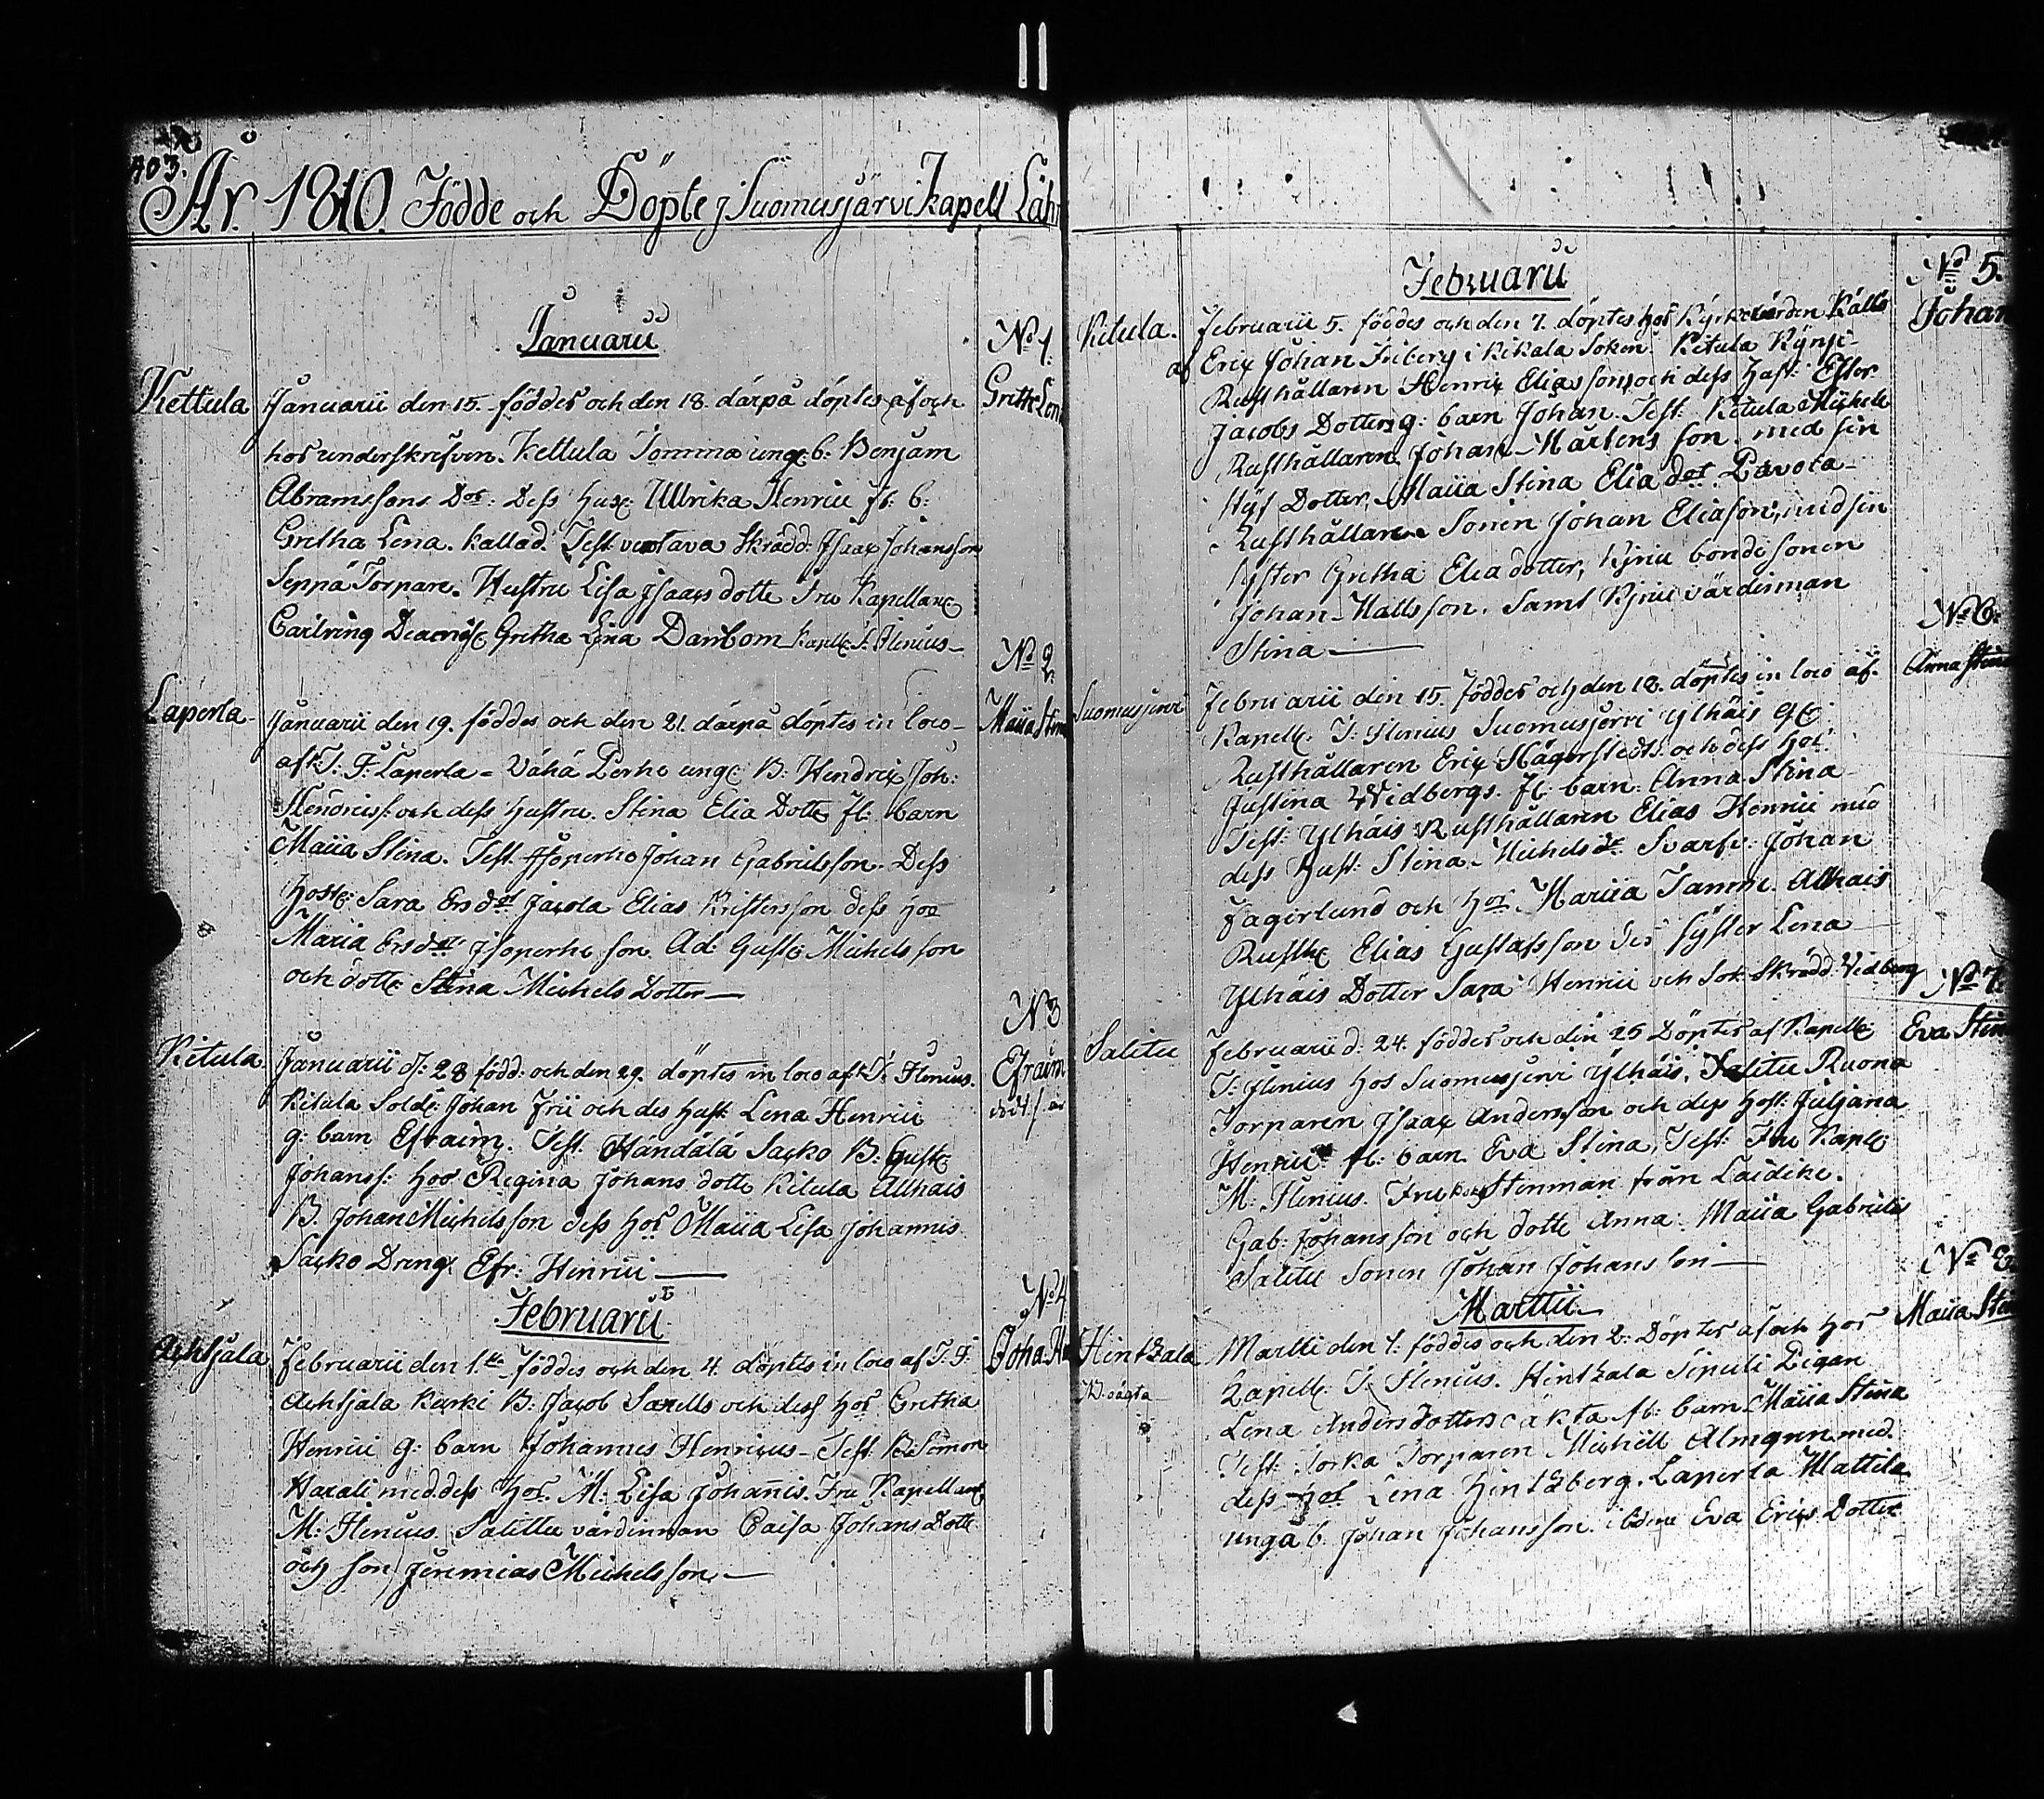 403.
År 1810. Födde och Döpte j Suomusjärvi Kapell
Januarii
Kettula
Januarii den 15. föddes och den 18. därpå döptes af och
hos underskrefven. Kettula Tomma unge b: Benjam
Abramssons Dot: Dess hus: Ullrika Henrici fl: b:
Gretha Lena. kallad. Test: Skrädd: Isaac Johansson
Seppä Torpare. Hustru Lisa Isaacs dotte Fru Kapellane
Gretha Lena Danbom Kapell: J: Flenius
No 1.
Greth Len
Laperla
Januarii den 19. föddes och den 21. därpå döptes in loco
af K: J: F: Laperla = Vähä Perhe unge B: Hendrix Joh:
Hendricss: och dess hustru. Stina Elia Dotte fl: barn
Maiia Stina. Test. Isoperhe Johan Gabrielsson. Dess
Host: Sara Ersdot Jacola Elias Kristersson dess hoo
Maria Ersdot Isoperhe son Ad: Gust: Michelsson
och dotte Stina Michels Dotter
No 2
Maiia Stin
Kitula
Januarii d: 28 född: och den 29. döptes in loco af K: J: Flenius.
Kitula Sold: Johan Frii och des hust: Lena Henrici
g: barn Efraim. Test. Händälä Sacko B: Gust:
Johanss: hoo Regina Johans dotte Kitula Allhais
B. Johan Michelsson dess hoo Maiia Lisa Johannis
Sacko Dreng. Efr: Henrici
N 3
Efraim
Februarii
Achtjala
Februarii den 1ste föddes och den 4. döptes in loco af J: F:
Achtjala Kurki B: Jacob Saxells och dess hoo Gretha
Henrici g: barn Johannes Henricus Test: B: Simon
med dess hoo. M: Lisa Johannis. Fru Kapellan:
M: Flenius Salittu värdinnan Caisa Johans Dott:
och son Jeremias Michelsson
No 4
Joha. H
Februarii
Kitula.
Februarii 5. föddes och den 7. döptes hos Kyrkovärden Källs
af Eric Johan Friberg i Kikala Soken. Kitula Kynsi
Rusthållaren Henric Eliasson och dess hust: Ester
Jacobs Dotter g: barn Johan. Test: Kitula
Rusthållaren Johan Mårtens son. med sin
styf Dotter, Maiia Stina Elia dot. Pavola
Rusthållare Sonen Johan Eliason, med sin
syster Gretha Elia dotter, Kynsi bonde sonen
Johan Matts son. Samt Kynsi värdinnan
Stina
No 5.
Johan
Suomusjervi
Februarii den 15. föddes och den 18. döptes in loco af.
Kapell: J: Flenius Suomusjervi Ylhäis
Rusthållaren Eric Hägerstedts och dess hoo:
Justina Widbergs. fl: barn. Anna Stina
Test: Ylhäis Rusthållaren Elias Henrici med
dess Hust: Stina Michels dr Svarfv: Johan
Fagerlund och hoo Mariia Tamm. Allhais
Rusth: Elias Gustafsson des syster Lena
Ylhäis Dotter Sara Henrici och Sok: Skrädd: Vidberg
No 6.
Anna Stina
Salitu
Februarii d: 24. föddes och den 25 Döptes af Kapell:
J: Flenius hos Suomusjervi Ylhäis, Salitu Ruona
Torparen Isaac Andersson och dess Host: Juljana
Henrici fl: barn. Eva Stina, Test: Fru Kapl:
M: Flenius. Fru Stenman från Laidike.
Gab: Johansson och dotte Anna Maiia Gabriels
Salitu Sonen Johan Johansson
No 7
Eva Stin
Marttii
Hintzala
Martti den 1: föddes och den 2: Döptes af och hos
Kapell: J: Flenius. Hintzala Sipuli Pigan
Lena Anders dotters oäkta fl: barn Maiia Stina
Test: Torka Torparen Michell Almgren med
dess hoo Lena Hintzberg. Laperla Mattila
unga b. Johan Johansson. Eva Erics Dotter
No 8
Maiia Sti